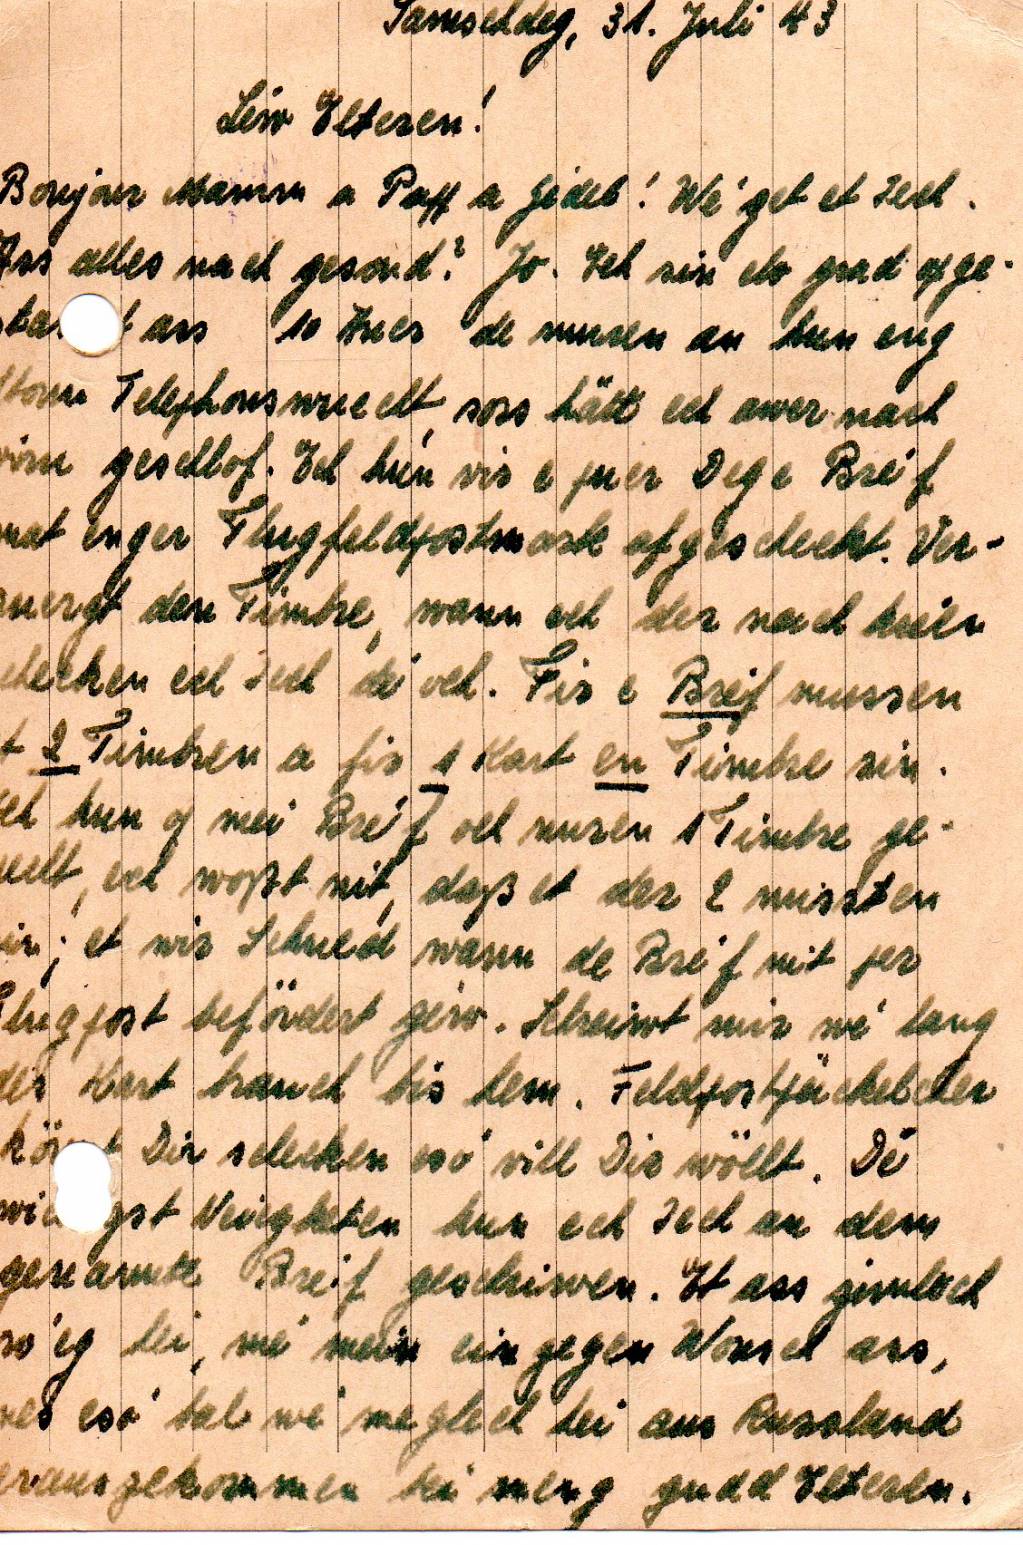 Samschdeg, 31. Juli 43
Leiw Elteren!
Bonjour Mamm a Papp a Jideb! Wé get et Iech.
Ass alles nach gesond? Jo. Ech sin elo grad opge-
t ass 10 Auer de muren an hun eng
Telephonswuecht, soss hätt ech awer nach
geschlof. Ech hun vir e puer Deg e Bréif
mat enger Flugfeldpostmark ofgescheckt. Ver-
den Timbre, wann ech der nach kréien
schecken ech Iech déi och. Fir e Bréif mussen
2 Timbren a fir 1 Kart en Timbre sin.
Ech hun op mei Bréif och nuren 1 Timbre ge-
, ech woßt nit, daß et der 2 missten
sin; et wir Schued wann de Bréif nit per
Flugpost befördert giw. Schreiwt mir wé lang
der Kart brauch bis hem. Feldpostpäckelcher
kön t Dir schecken esó vill Dir wöllt. Dé
wic gst Neiigketen hun ech Iech an dem
genannte Breif geschriwen. Et ass zimlech
ró'eg hei, wé mein eingegen Wonsch ass,
esó bal wé méglech hei aus Russland
erauszekommen bei meng gudd Elteren.